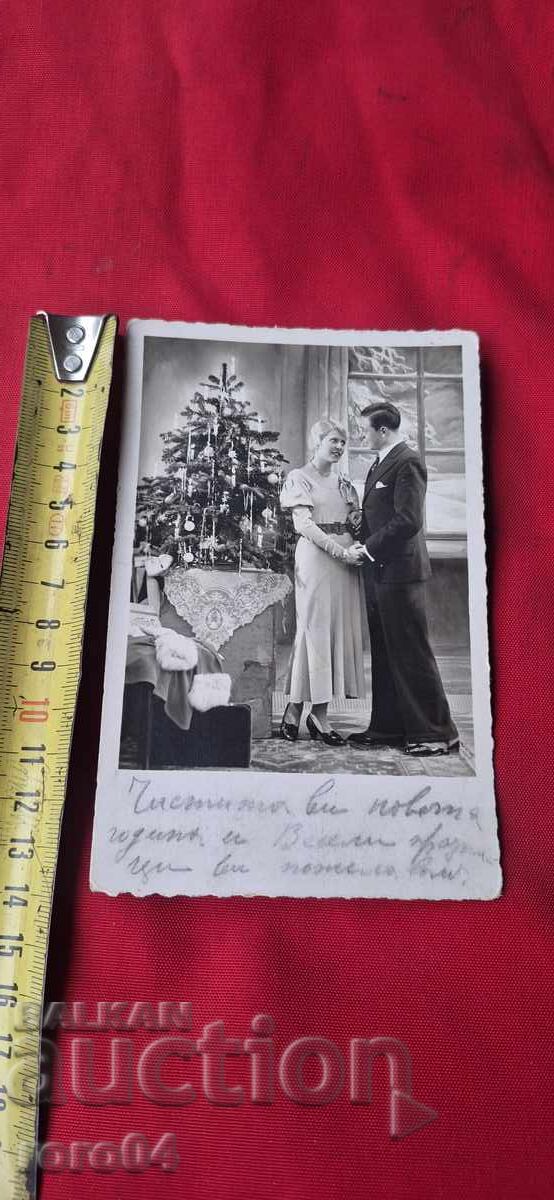 2
3
4
5
6
7
8
9
10
11
12
13
14
15
16
17
18
Честита ви новата
година и Весели праз-
ци ви пожелавам.
BALKAN
auction
roro04